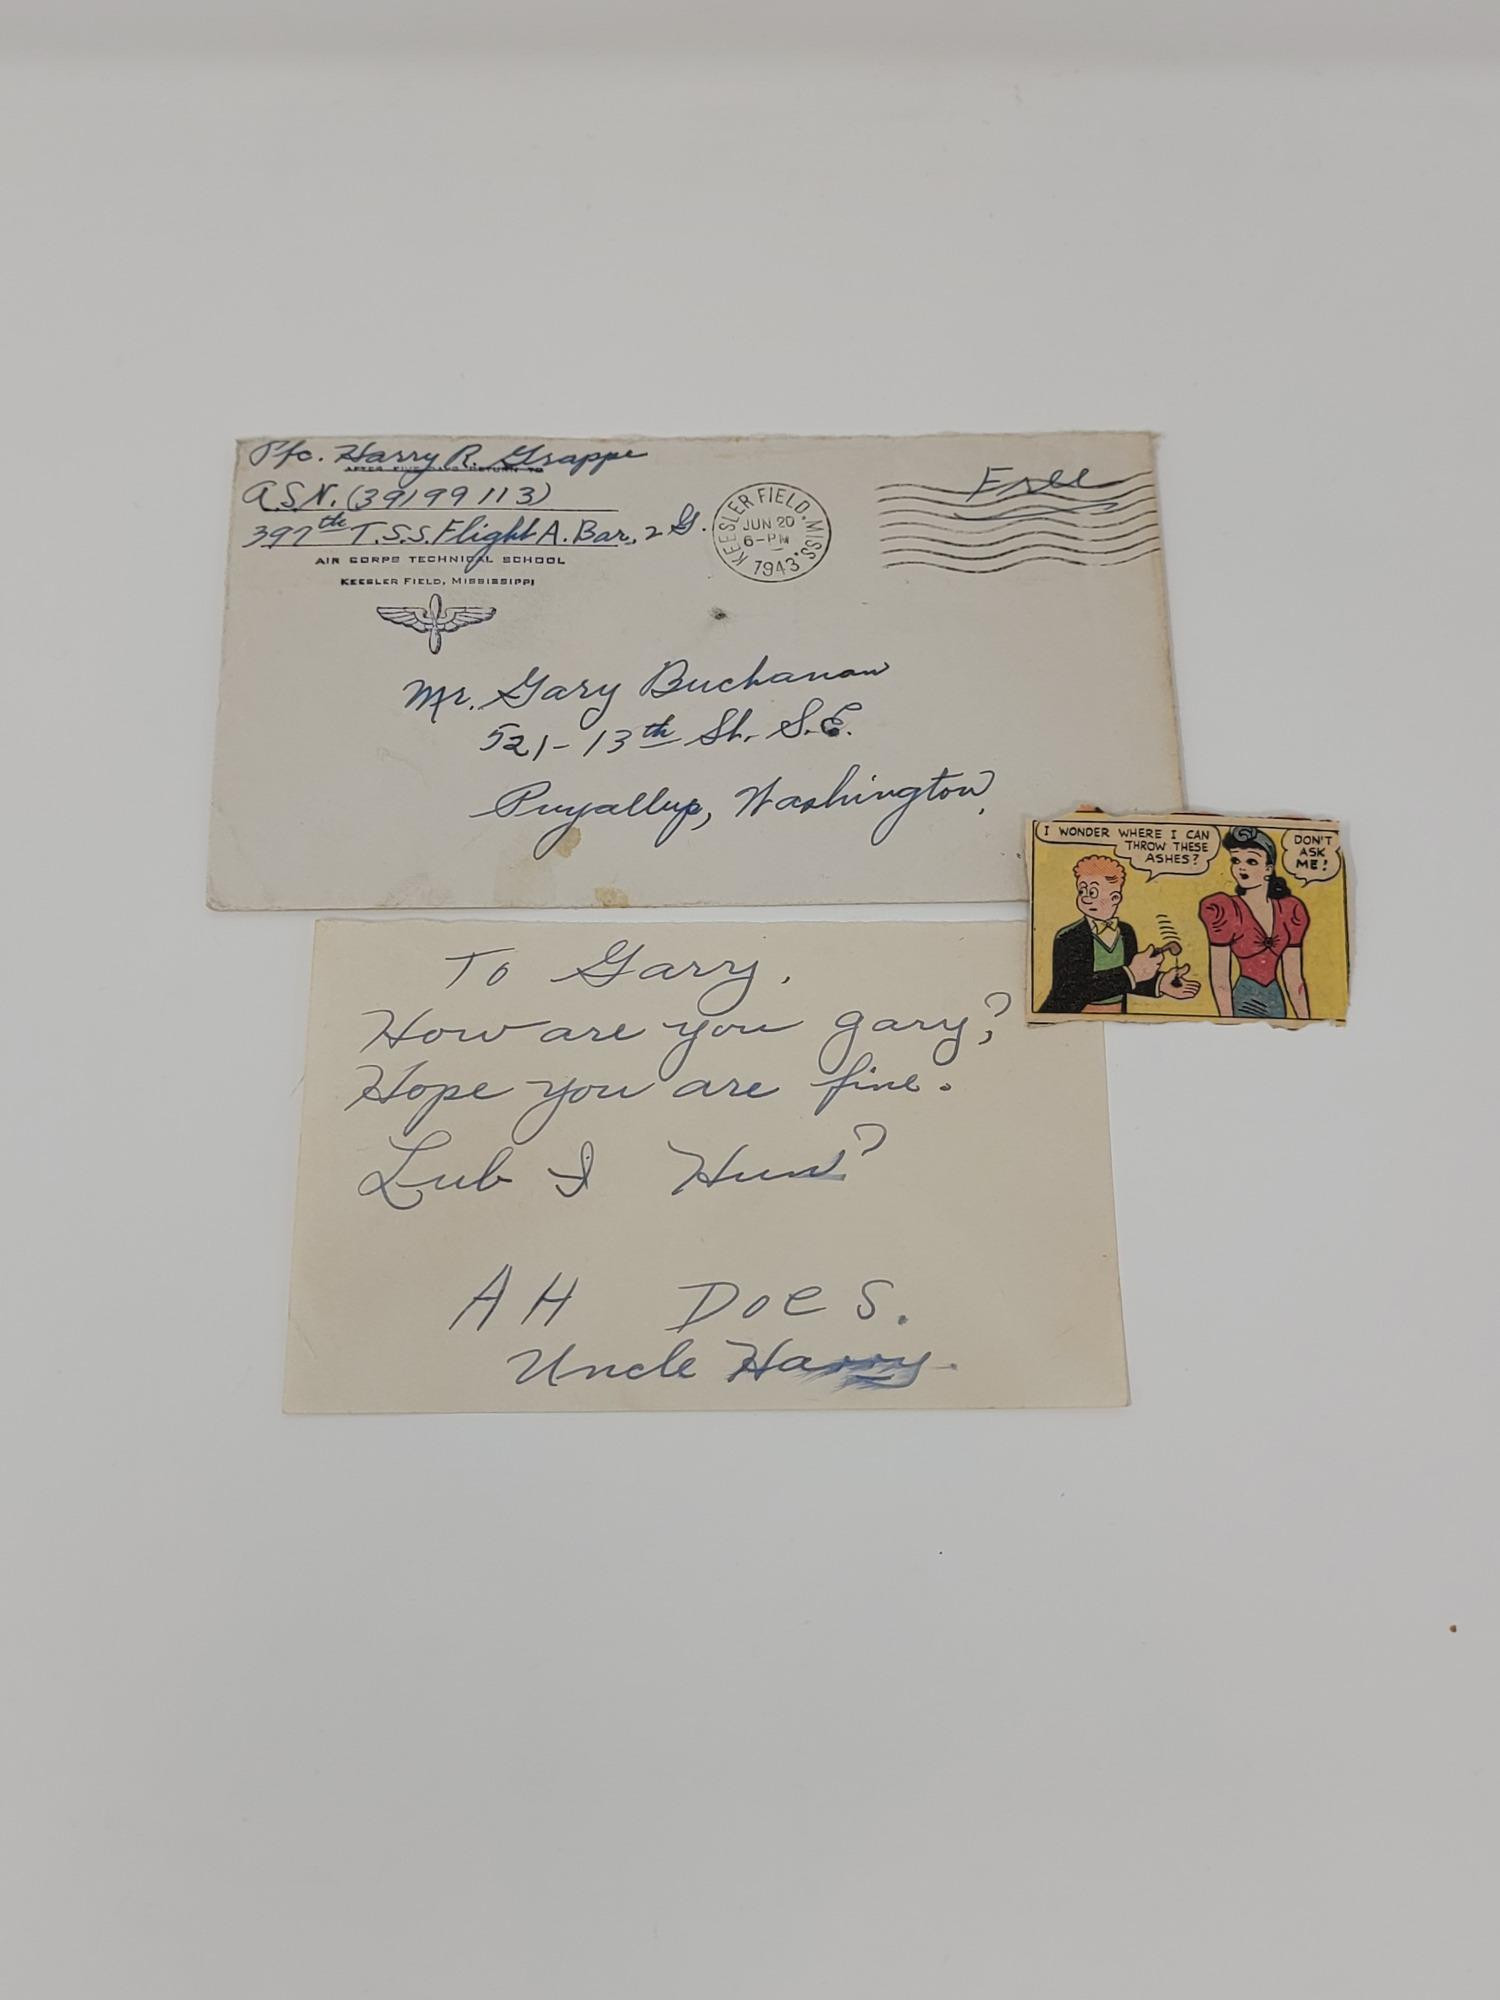 Pfc. Harry R. Grappe
AFTER FIVE DAYS RETURN TO
A.S.N. (39199113)
397th T.S.S. Flight A. Bar. 2 G.
AIR CORPS TECHNICAL SCHOOL
KEESLER FIELD, MISSISSIPPI
KEESLER FIELD, MISS.
JUN 20
6-PM
1943
Free
Mr. Gary Buchanan
521-13th St. S.E.
Puyallup, Washington
I WONDER WHERE I CAN
THROW THESE
ASHES?
DON'T
ASK
ME!
To Gary.
How are you gary?
Hope you are fine.
Lub I Hun?
AH DOES.
Uncle Harry.